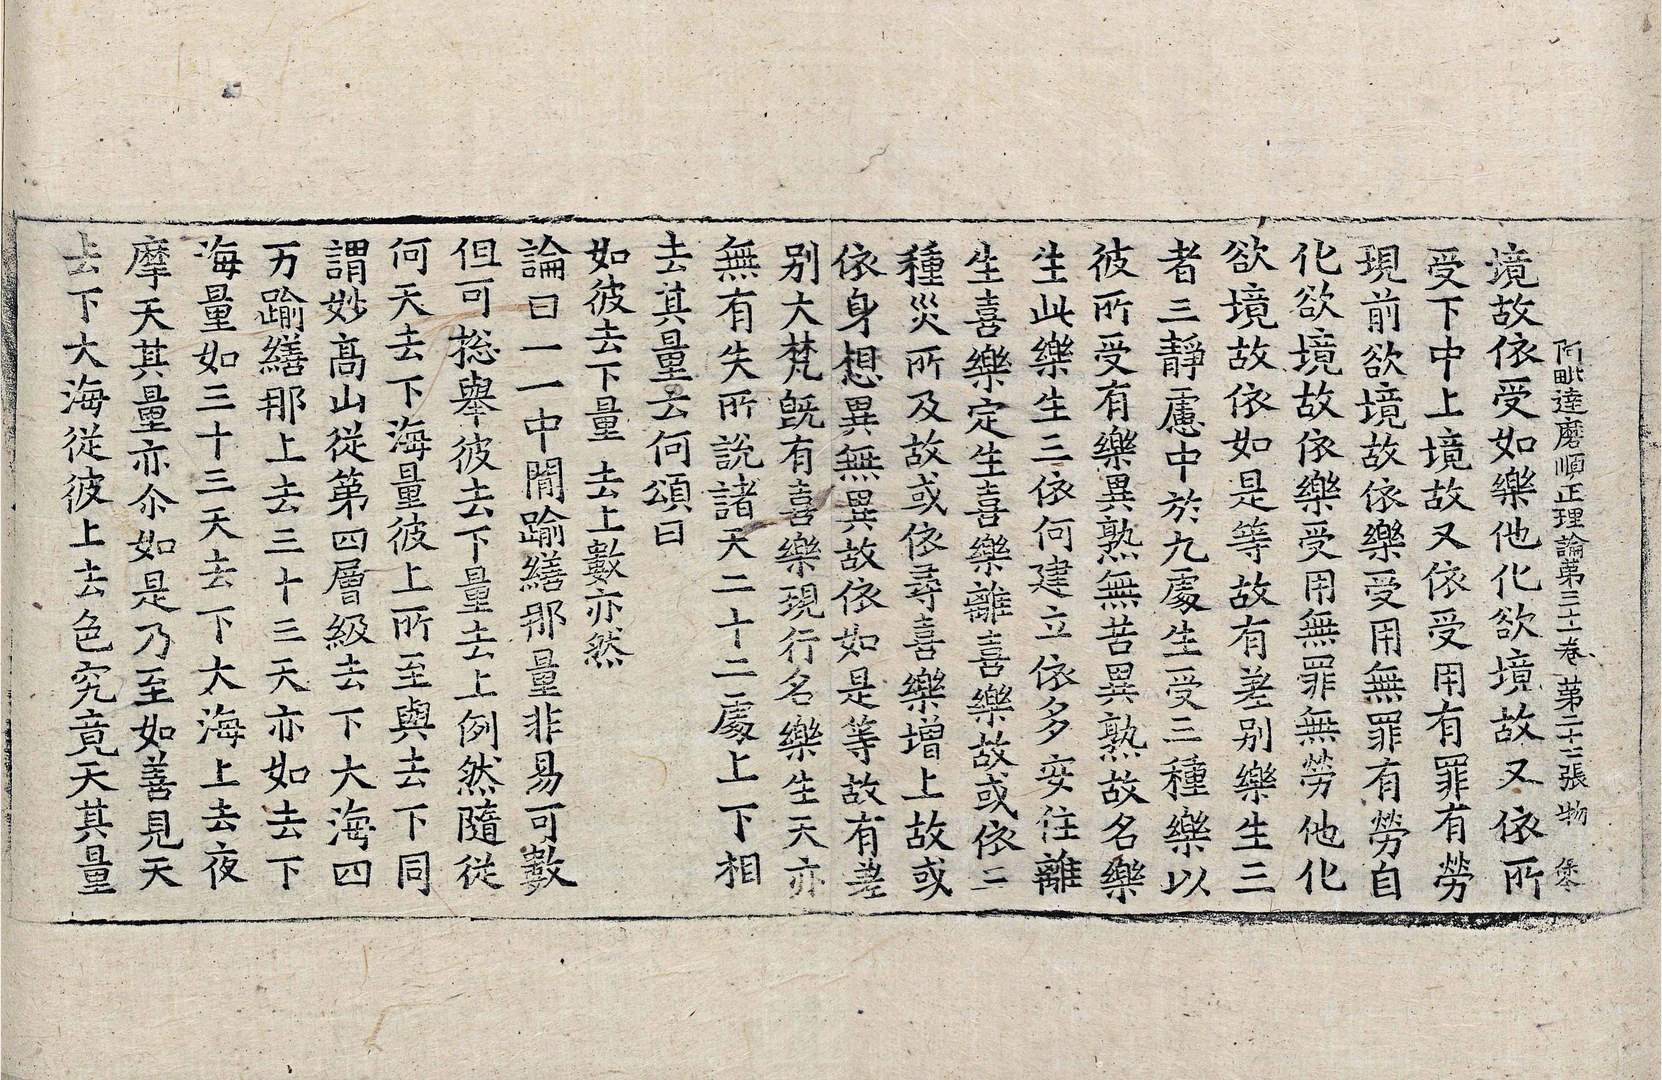 阿毗達磨順正理論第三十一卷 第二十二張 物
境故依受如樂他化欲境故又依所
受下中上境故又依受用有罪有勞
現前欲境故依樂受用無罪有勞自
化欲境故依樂受用無罪無勞他化
欲境故依如是等故有差别樂生三
者三靜慮中於九處生受三種樂以
彼所受有樂異熟無苦異熟故名樂
生此樂生三依何建立依多安住離
生喜樂定生喜樂離喜樂故或依二
種災所及故或依尋喜樂增上故或
依身想異無異故依如是等故有差
别大梵旣有喜樂現行名樂生天亦
無有失所說諸天二十二處上下相
去其量云何頌曰
如彼去下量 去上數亦然
論曰一一中閒踰繕那量非易可數
但可捴舉彼去下量去上例然隨從
何天去下海量彼上所至與去下同
謂妙高山從第四層級去下大海四
万踰繕那上去三十三天亦如去下
海量如三十三天去下大海上去夜
摩天其量亦尒如是乃至如善見天
去下大海從彼上去色究竟天其量